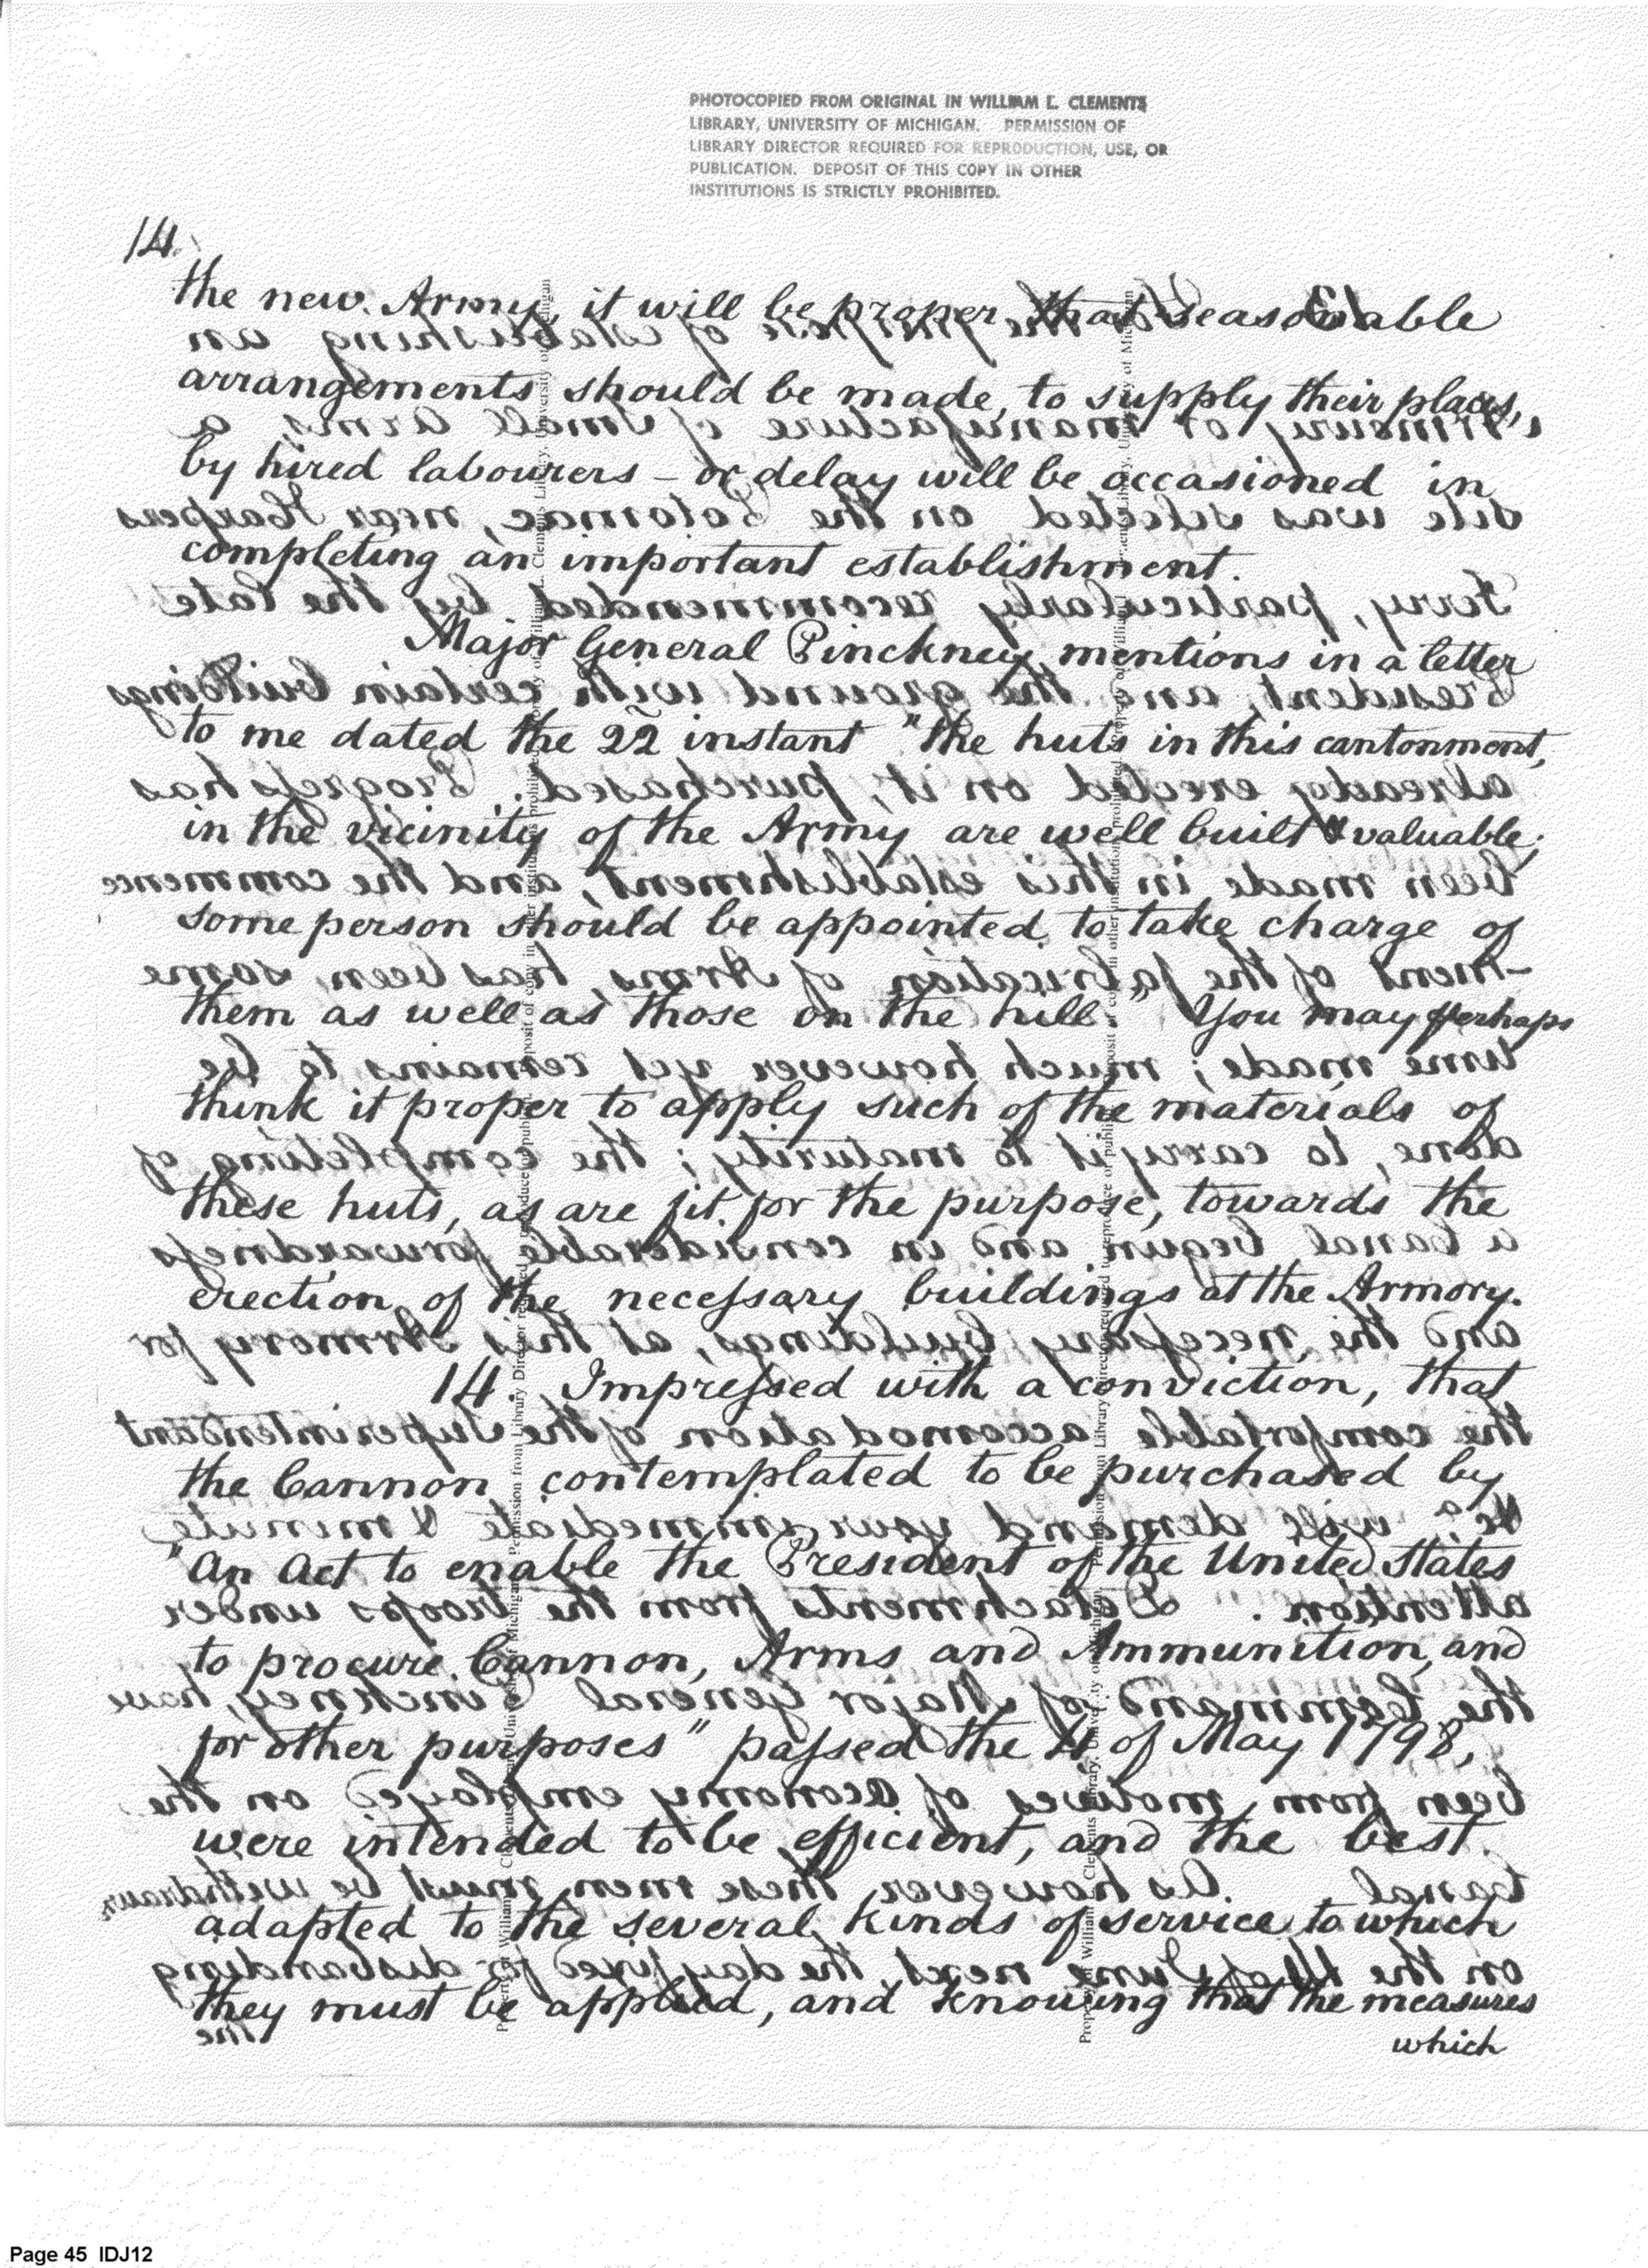 PHOTOCOPIED FROM ORIGINAL IN WILLIAM L. CLEMENTS
LIBRARY, UNIVERSITY OF MICHIGAN. PERMISSION OF
LIBRARY DIRECTOR REQUIRED FOR REPRODUCTION, USE, OR
PUBLICATION. DEPOSIT OF THIS COPY IN OTHER
INSTITUTIONS IS STRICTLY PROHIBITED.
14.
the new Army, it will be proper that seasonable
arrangements should be made, to supply their places,
by hired labourers – or delay will be occasioned in
completing an important establishment.
Major General Pinckney mentions in a letter
to me dated the 22 instant "the huts in this cantonment,
in the vicinity of the Army are well built & valuable;
some person should be appointed to take charge of
them as well as those on the hill." You may perhaps
think it proper to apply such of the materials of
these huts, as are fit for the purpose, towards the
erection of the necessary buildings at the Armory.
14. Impressed with a conviction, that
the Cannon contemplated to be purchased by
"An Act to enable the President of the United States
to procure Cannon, Arms and Ammunition, and
for other purposes" passed the 4 of May 1798,
were intended to be efficient, and the best
adapted to the several kinds of service to which
they must be applied, and knowing that the measures
which
Page 45 IDJ12